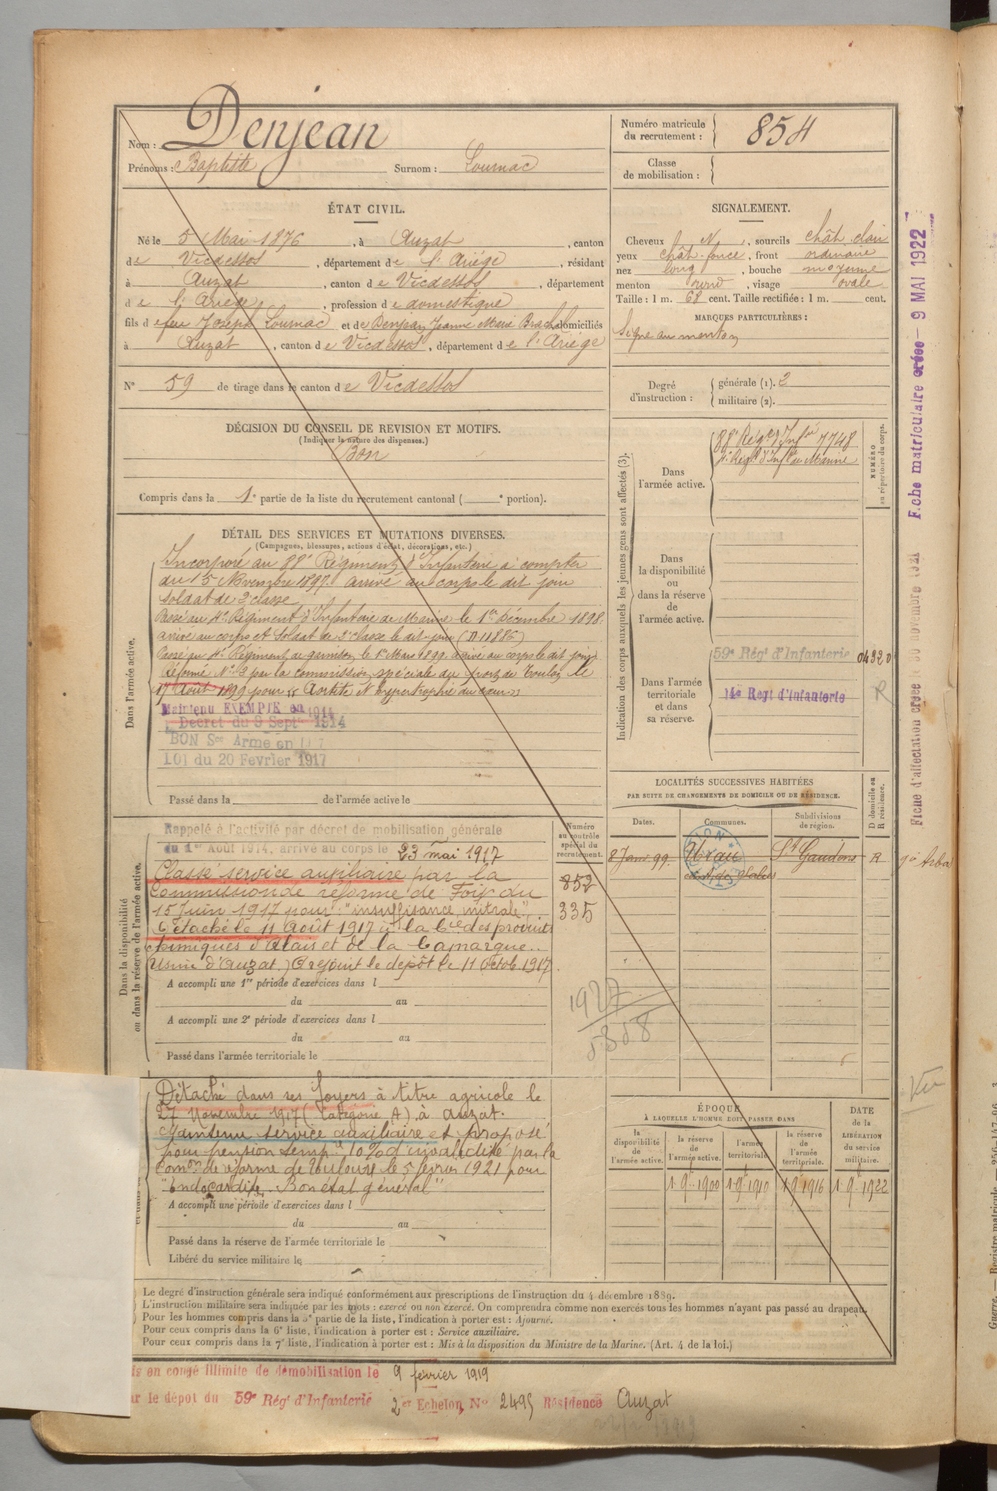 Nom : Denjean
Prénoms : Baptiste Surnom : Lournac
ÉTAT CIVIL.
Né le 5 Mai 1876, à Auzat, canton
de Vicdessos, département de l'Ariège, résidant
à Auzat, canton de Vicdessos, département
de l'Ariège, profession de domestique
fils de feu Joseph Lournac et de Denjean Jeanne Marie domiciliés
à Auzat, canton de Vicdessos, département de l'Ariège
N° 59 de tirage dans le canton de Vicdessos
DÉCISION DU CONSEIL DE REVISION ET MOTIFS.
(Indiquer la nature des dispenses.)
Bon
Compris dans la 1e partie de la liste du recrutement cantonal ( e portion).
DÉTAIL DES SERVICES ET MUTATIONS DIVERSES.
(Campagnes, blessures, actions d'éclat, décorations, etc.)
Dans l'armée active.
Incorporé au 88e Régiment d'Infanterie à compter
du 15 Novembre 1897. arrivé au corps le dit jour
soldat de 2e classe
Passé au 4e Régiment d'Infanterie de Marine le 1er Décembre 1898.
arrivé au corps et soldat de 2e classe le dit jour (N 11886)
Passé au 4e Régiment de garnison le 1er Mars 1899 arrivé au corps le dit jour
Réformé N° 2 par la commission spéciale du port de Toulon le
17 Août 1899 pour "Aortite et hypertrophie du cœur"
Maintenu EXEMPTE en 1914
Décret du 9 Sept. 1914
BON Sce Armé en 1917
LOI du 20 Fevrier 1917
Passé dans la de l'armée active le
Dans la disponibilité
ou dans la réserve de l'armée active.
Rappelé à l'activité par décret de mobilisation générale
du 1er Août 1914, arrivé au corps le 23 mai 1917
Classé service auxiliaire par la
Commission de réforme de Foix du
15 Juin 1917 pour: "insuffisance mitrale"
Détaché le 11 Août 1917 à la Cie des produits
chimiques d'Alais et de la Camargue..
Usine d'Auzat.) Rejoint le dépôt le 11 Octob 1917
A accompli une 1re période d'exercices dans l
du au
A accompli une 2e période d'exercices dans l
du au
Passé dans l'armée territoriale le
Numéro
au contrôle
spécial du
recrutement.
852
335
1927
5358
Détaché dans ses foyers à titre agricole le
27 Novembre 1917 (Catégorie A) à Auzat.
Maintenu service auxiliaire et proposé
pour pension temp. 10% d'invalidité par la
Comon de réforme de Toulouse le 5 février 1921 pour
"Endocardite. Bon état général"
A accompli une période d'exercices dans l
du au
Passé dans la réserve de l'armée territoriale le
Libéré du service militaire le
Numéro matricule
du recrutement : 854
Classe
de mobilisation :
SIGNALEMENT.
Cheveux N, sourcils chât. clair
yeux chât. foncé, front ordinaire
nez long, bouche moyenne
menton rond, visage ovale
Taille : 1 m. 68 cent. Taille rectifiée : 1 m. cent.
MARQUES PARTICULIÈRES :
Signe au menton
Degré
d'instruction :
générale (1). 2
militaire (2).
Indication des corps auxquels les jeunes gens sont affectés (3).
NUMÉRO
au répertoire du corps.
Dans
l'armée active.
88e Régt d'Infrie 7748
4e Régt d'Infie de Marine
Dans
la disponibilité
ou
dans la réserve
de
l'armée active.
Dans l'armée
territoriale
et dans
sa réserve.
59e Régt d'Infanterie 04320
14e Regt d'Infanterie R
LOCALITÉS SUCCESSIVES HABITÉES
PAR SUITE DE CHANGEMENTS DE DOMICILE OU DE RÉSIDENCE.
Dates. Communes. Subdivisions
de région.
D domicile ou
R résidence.
8 Janv 99 St Gaudens R
ÉPOQUE
À LAQUELLE L'HOMME DOIT PASSER DANS
la
disponibilité
de
l'armée active.
la réserve
de
l'armée active.
l'armée
territoriale.
la réserve
de
l'armée
territoriale.
DATE
de la
LIBÉRATION
du service
militaire.
1 9bre 1900 1 9bre 1910 1 9bre 1916 1 9bre 1922
Le degré d'instruction générale sera indiqué conformément aux prescriptions de l'instruction du 4 décembre 1889.
L'instruction militaire sera indiquée par les mots : exercé ou non exercé. On comprendra comme non exercés tous les hommes n'ayant pas passé au drapeau.
Pour les hommes compris dans la 5e partie de la liste, l'indication à porter est : Ajourné.
Pour ceux compris dans la 6e liste, l'indication à porter est : Service auxiliaire.
Pour ceux compris dans la 7e liste, l'indication à porter est : Mis à la disposition du Ministre de la Marine. (Art. 4 de la loi.)
is en congé illimité de démobilisation le 9 février 1919
ar le dépôt du 59e Régt d'Infanterie 2er Echelon, N° 2495 Résidence Auzat
Fiche matriculaire créée - 9 MAI 1922
Fiche d'affectation créée novembre 1921
Vu